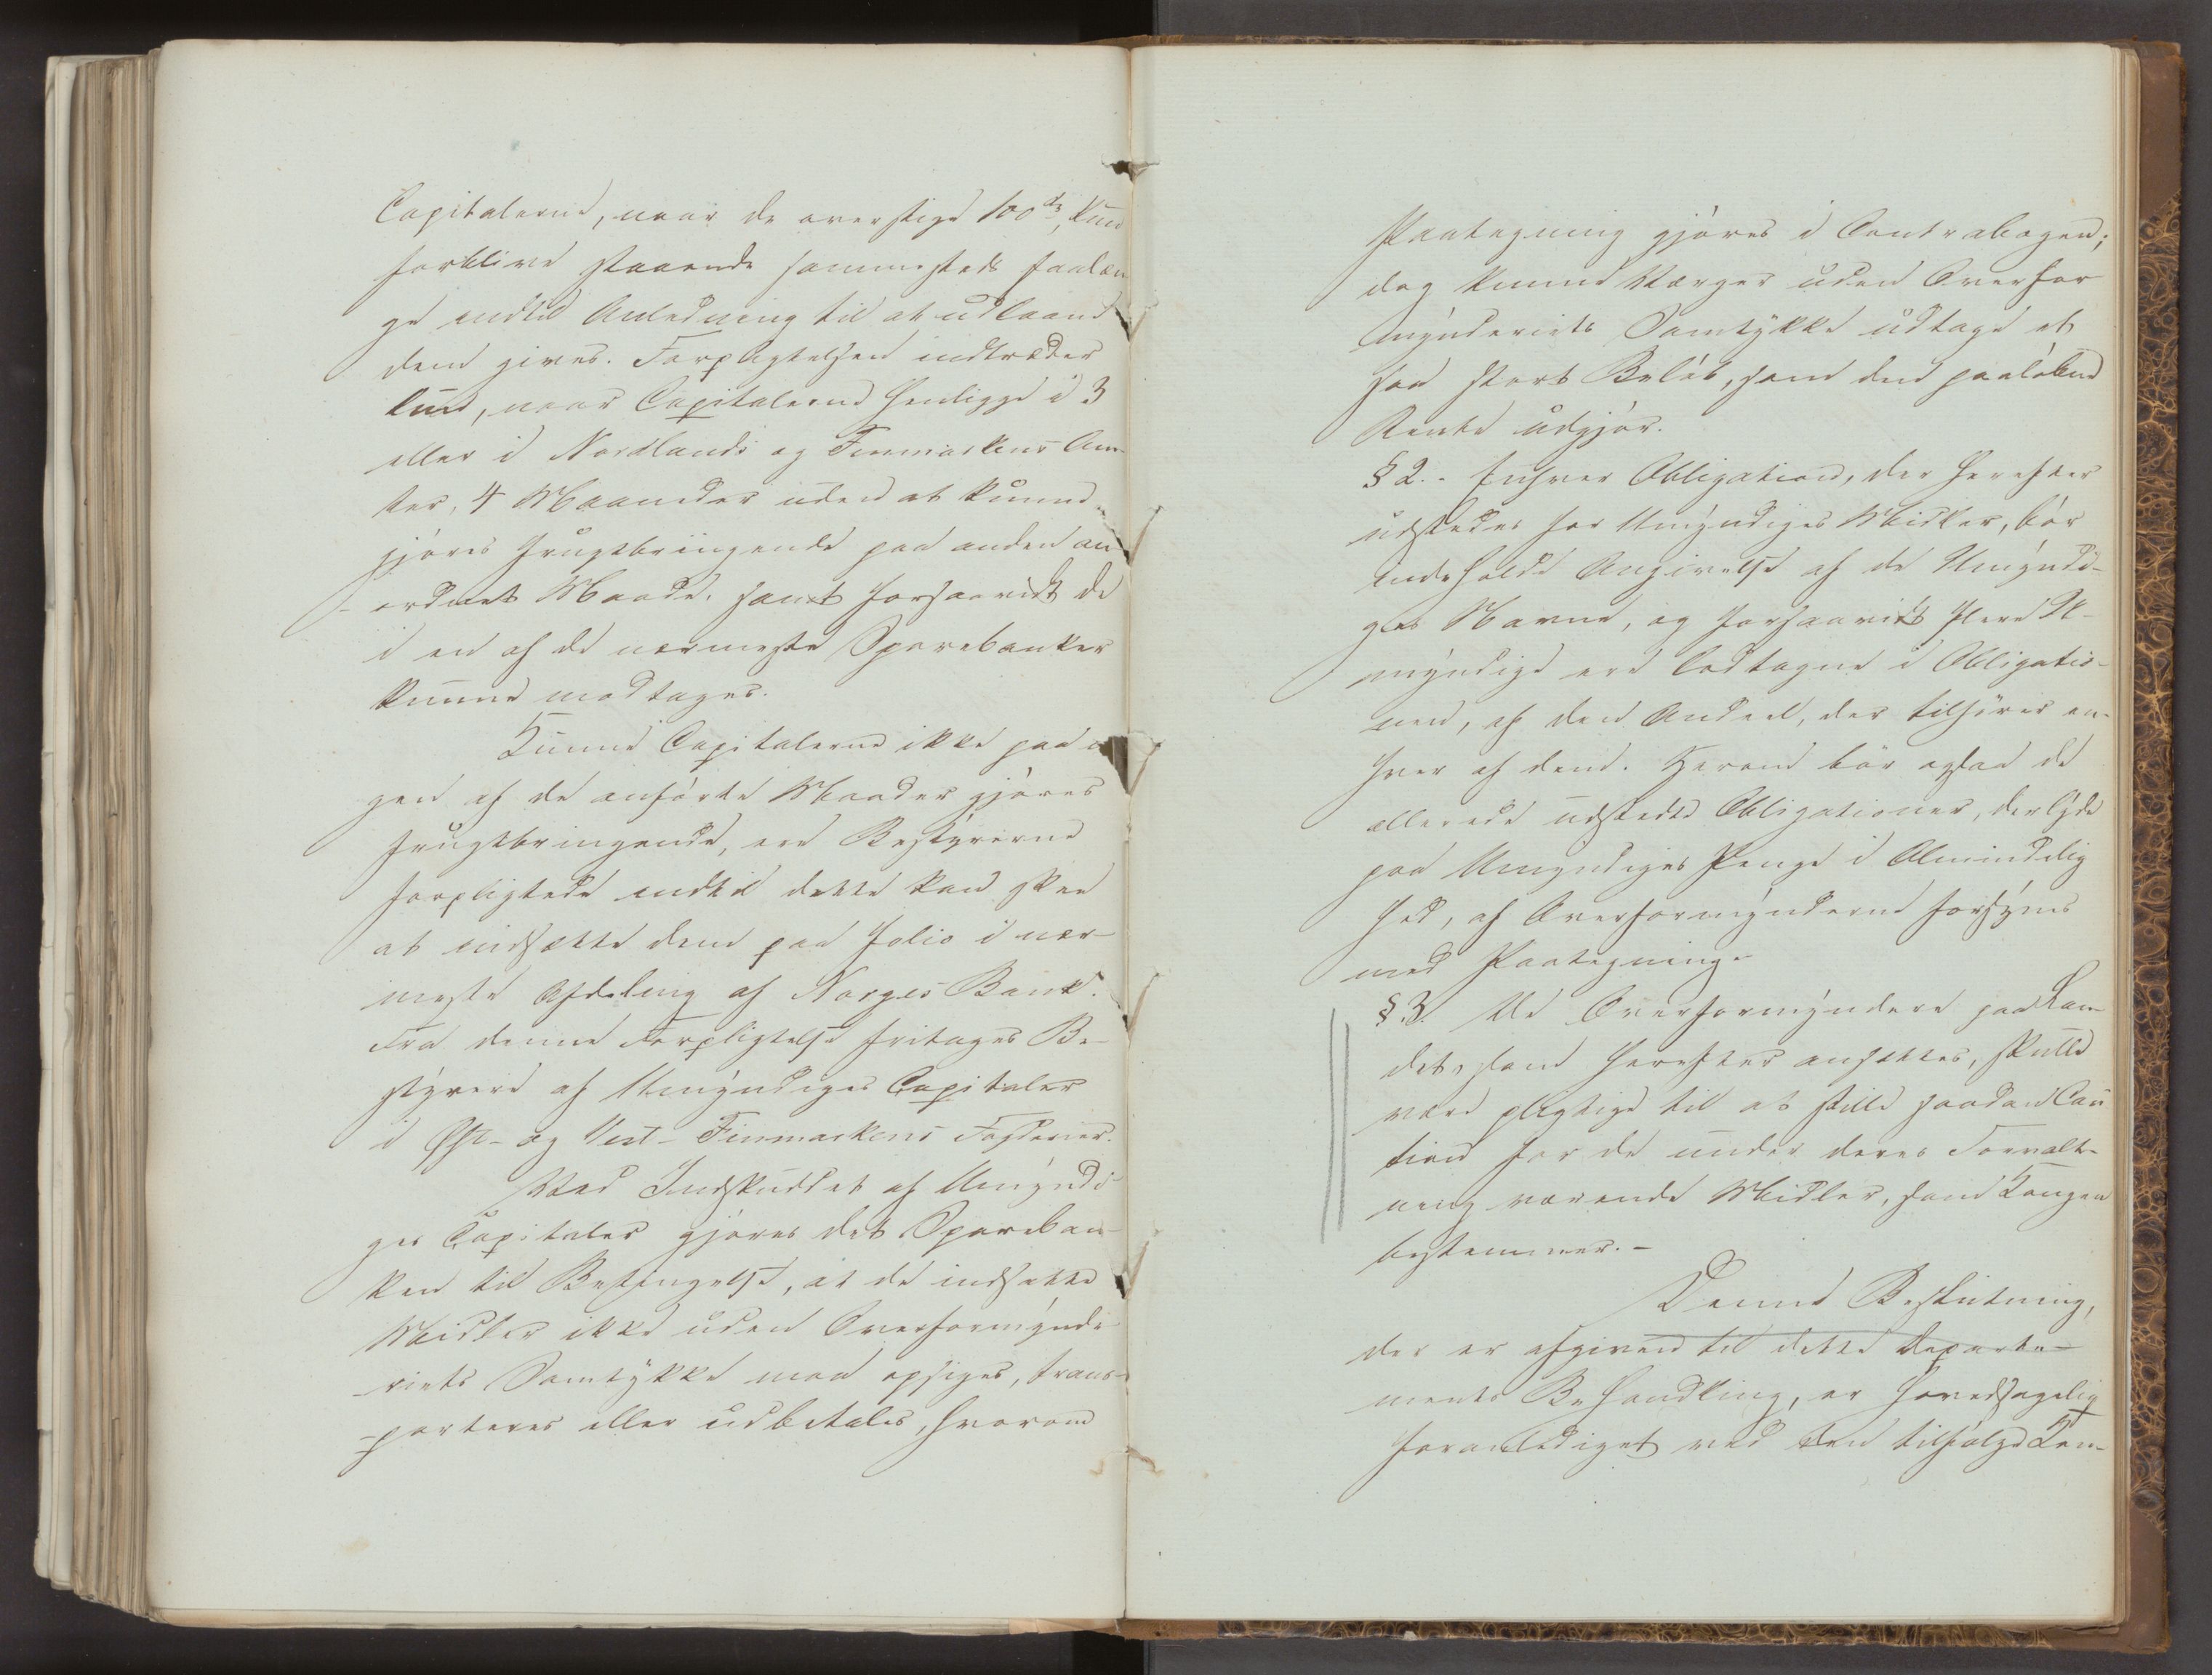 Capitalerne, naar de overstige 100 d, kun
forblive staaende sammesteds saalæn
ge indtil Anledning til at udlaane
dem gives. Forpligtelsen indtræder
kun, naar Capitalerne henligge i 3
eller i Nordlands og Finmarkens Am-
ter, 4 Maaneder uden at kunne
gjøres frugtbringende paa anden an
-ordnet Maade, samt forsaavidt de
i en af de nærmeste Sparebanker
kunne modtages.
Kunne Capitalerne ikke paa
gen af de anførte Maader gjøres
frugtbringende, ere Bestyrerne
forpligtede indtil dette kan skee
at indsætte dem paa Folio i nær-
meste Afdeling af Norges Bank.
Fra denne Forpligtelse fritages Be-
styrere af Umyndiges Capitaler
i Øst- og Vest-Finmarkens Fogderier.
Ved Indskuddet af Umyndi-
ges Capitaler gjøres det Spareban-
ken til Betingelse, at de indsatte
Midler ikke uden Overformynde
riets Samtykke maa opsiges, trans-
-porteres eller udbetales, hvorom
Paategning gjøres i Contrabogen;
dog kunne Værger uden Overfor
mynderiets Samtykke udtage et
saa stort Beløb, som den paaløbne
Rente udgjør.
§ 2. - Enhver Obligation, der herefter
udstedes for Umyndiges Midler, bør
indeholde Angivelse af de Umyndi-
ges Navne, og forsaavidt flere U-
myndige ere lodtagne i Obligatio-
nen, af den Andeel, der tilhører en-
hver af dem. Herom bør ogsaa de
allerede udstedte Obligationer, der lyde
paa Umyndiges Penge i Almindelig
hed, af Overformynderne forsynes
med Paategning.
§ 3. De Overformyndere paa Lan
det, som herefter ansættes, skulle
være pligtige til at stille saadan Cau
tion for de under deres Forvalt-
ning værende Midler, som Kongen
bestemmer. -
Denne Beslutning,
der er afgiven til dette Departe-
ments Behandling, er hovedsagelig
foranlediget ved den tilfølge Kon-